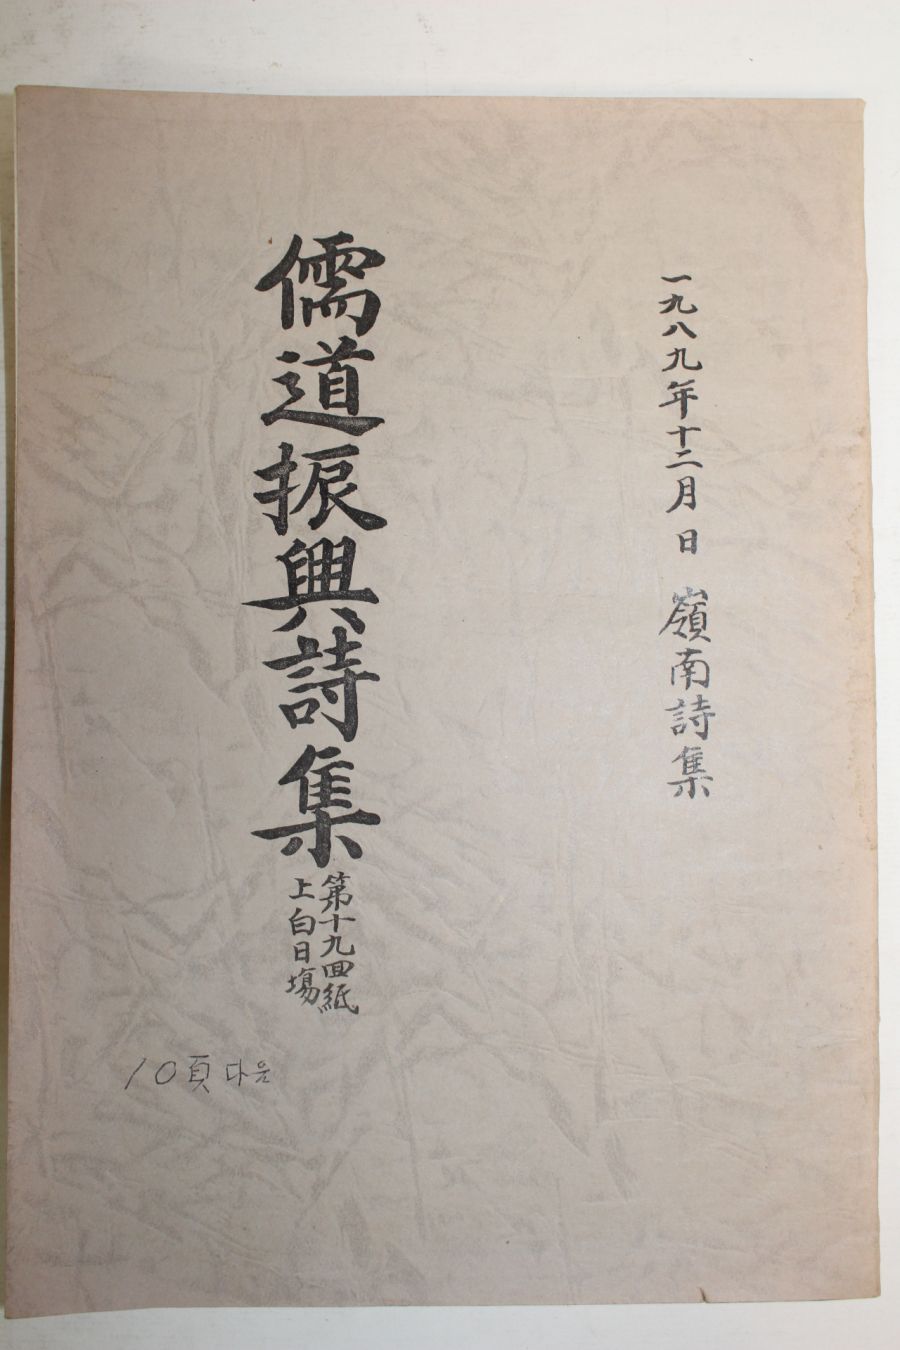 一九八九年十二月 日 嶺南詩集
儒道振興詩集
第十九回紙
上白日場
10頁 다음